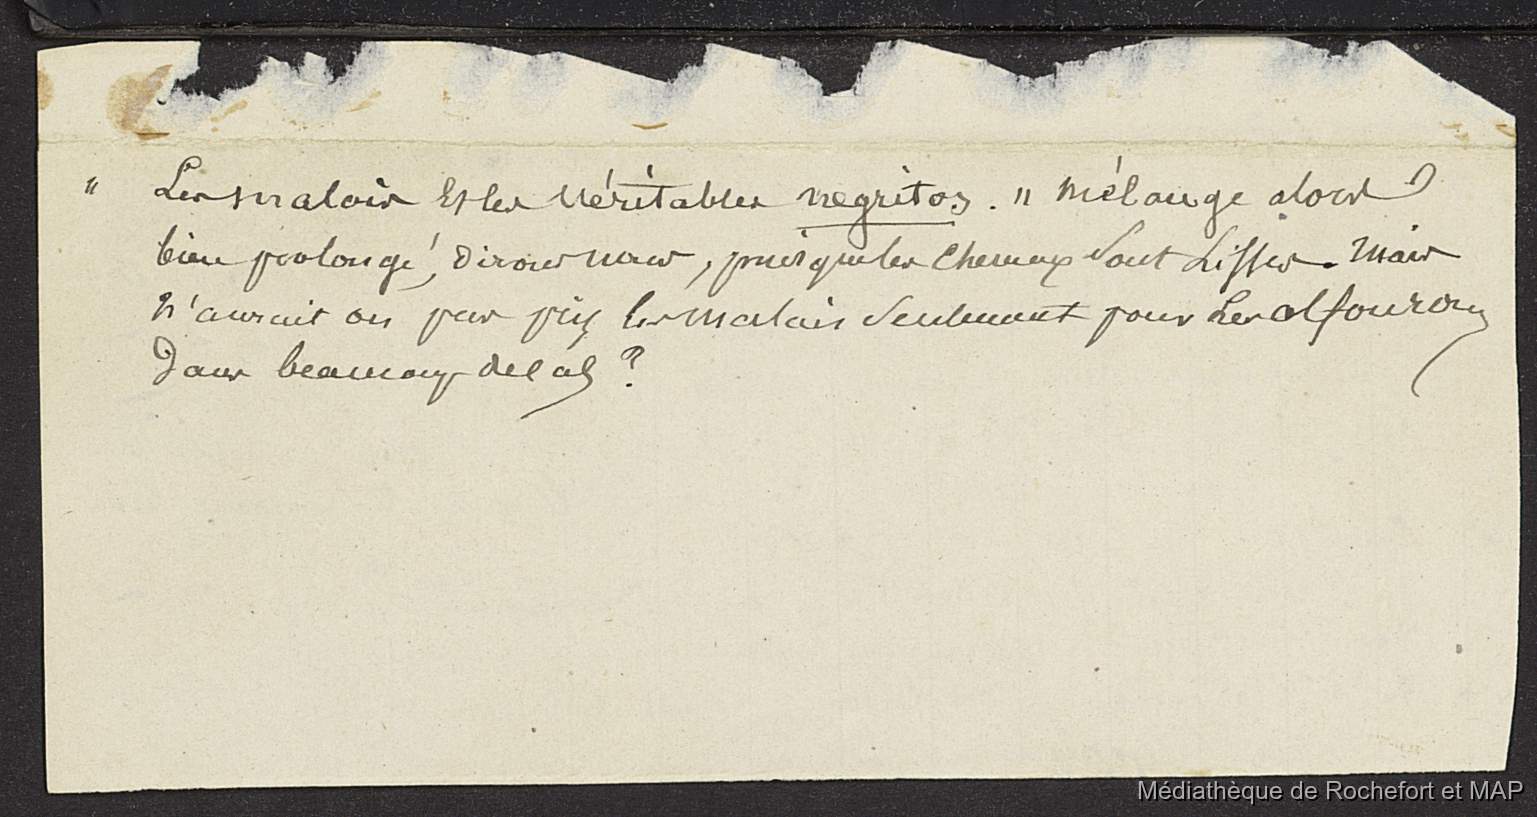 " Les malais et les véritables negritos. " mélange alors
bien prolongé, dirons nous, puisque les cheveux sont lisses. Mais
n'aurait on pas pris les malais seulement pour les alfourous
dans beaucoup de cas ?
Médiathèque de Rochefort et MAP